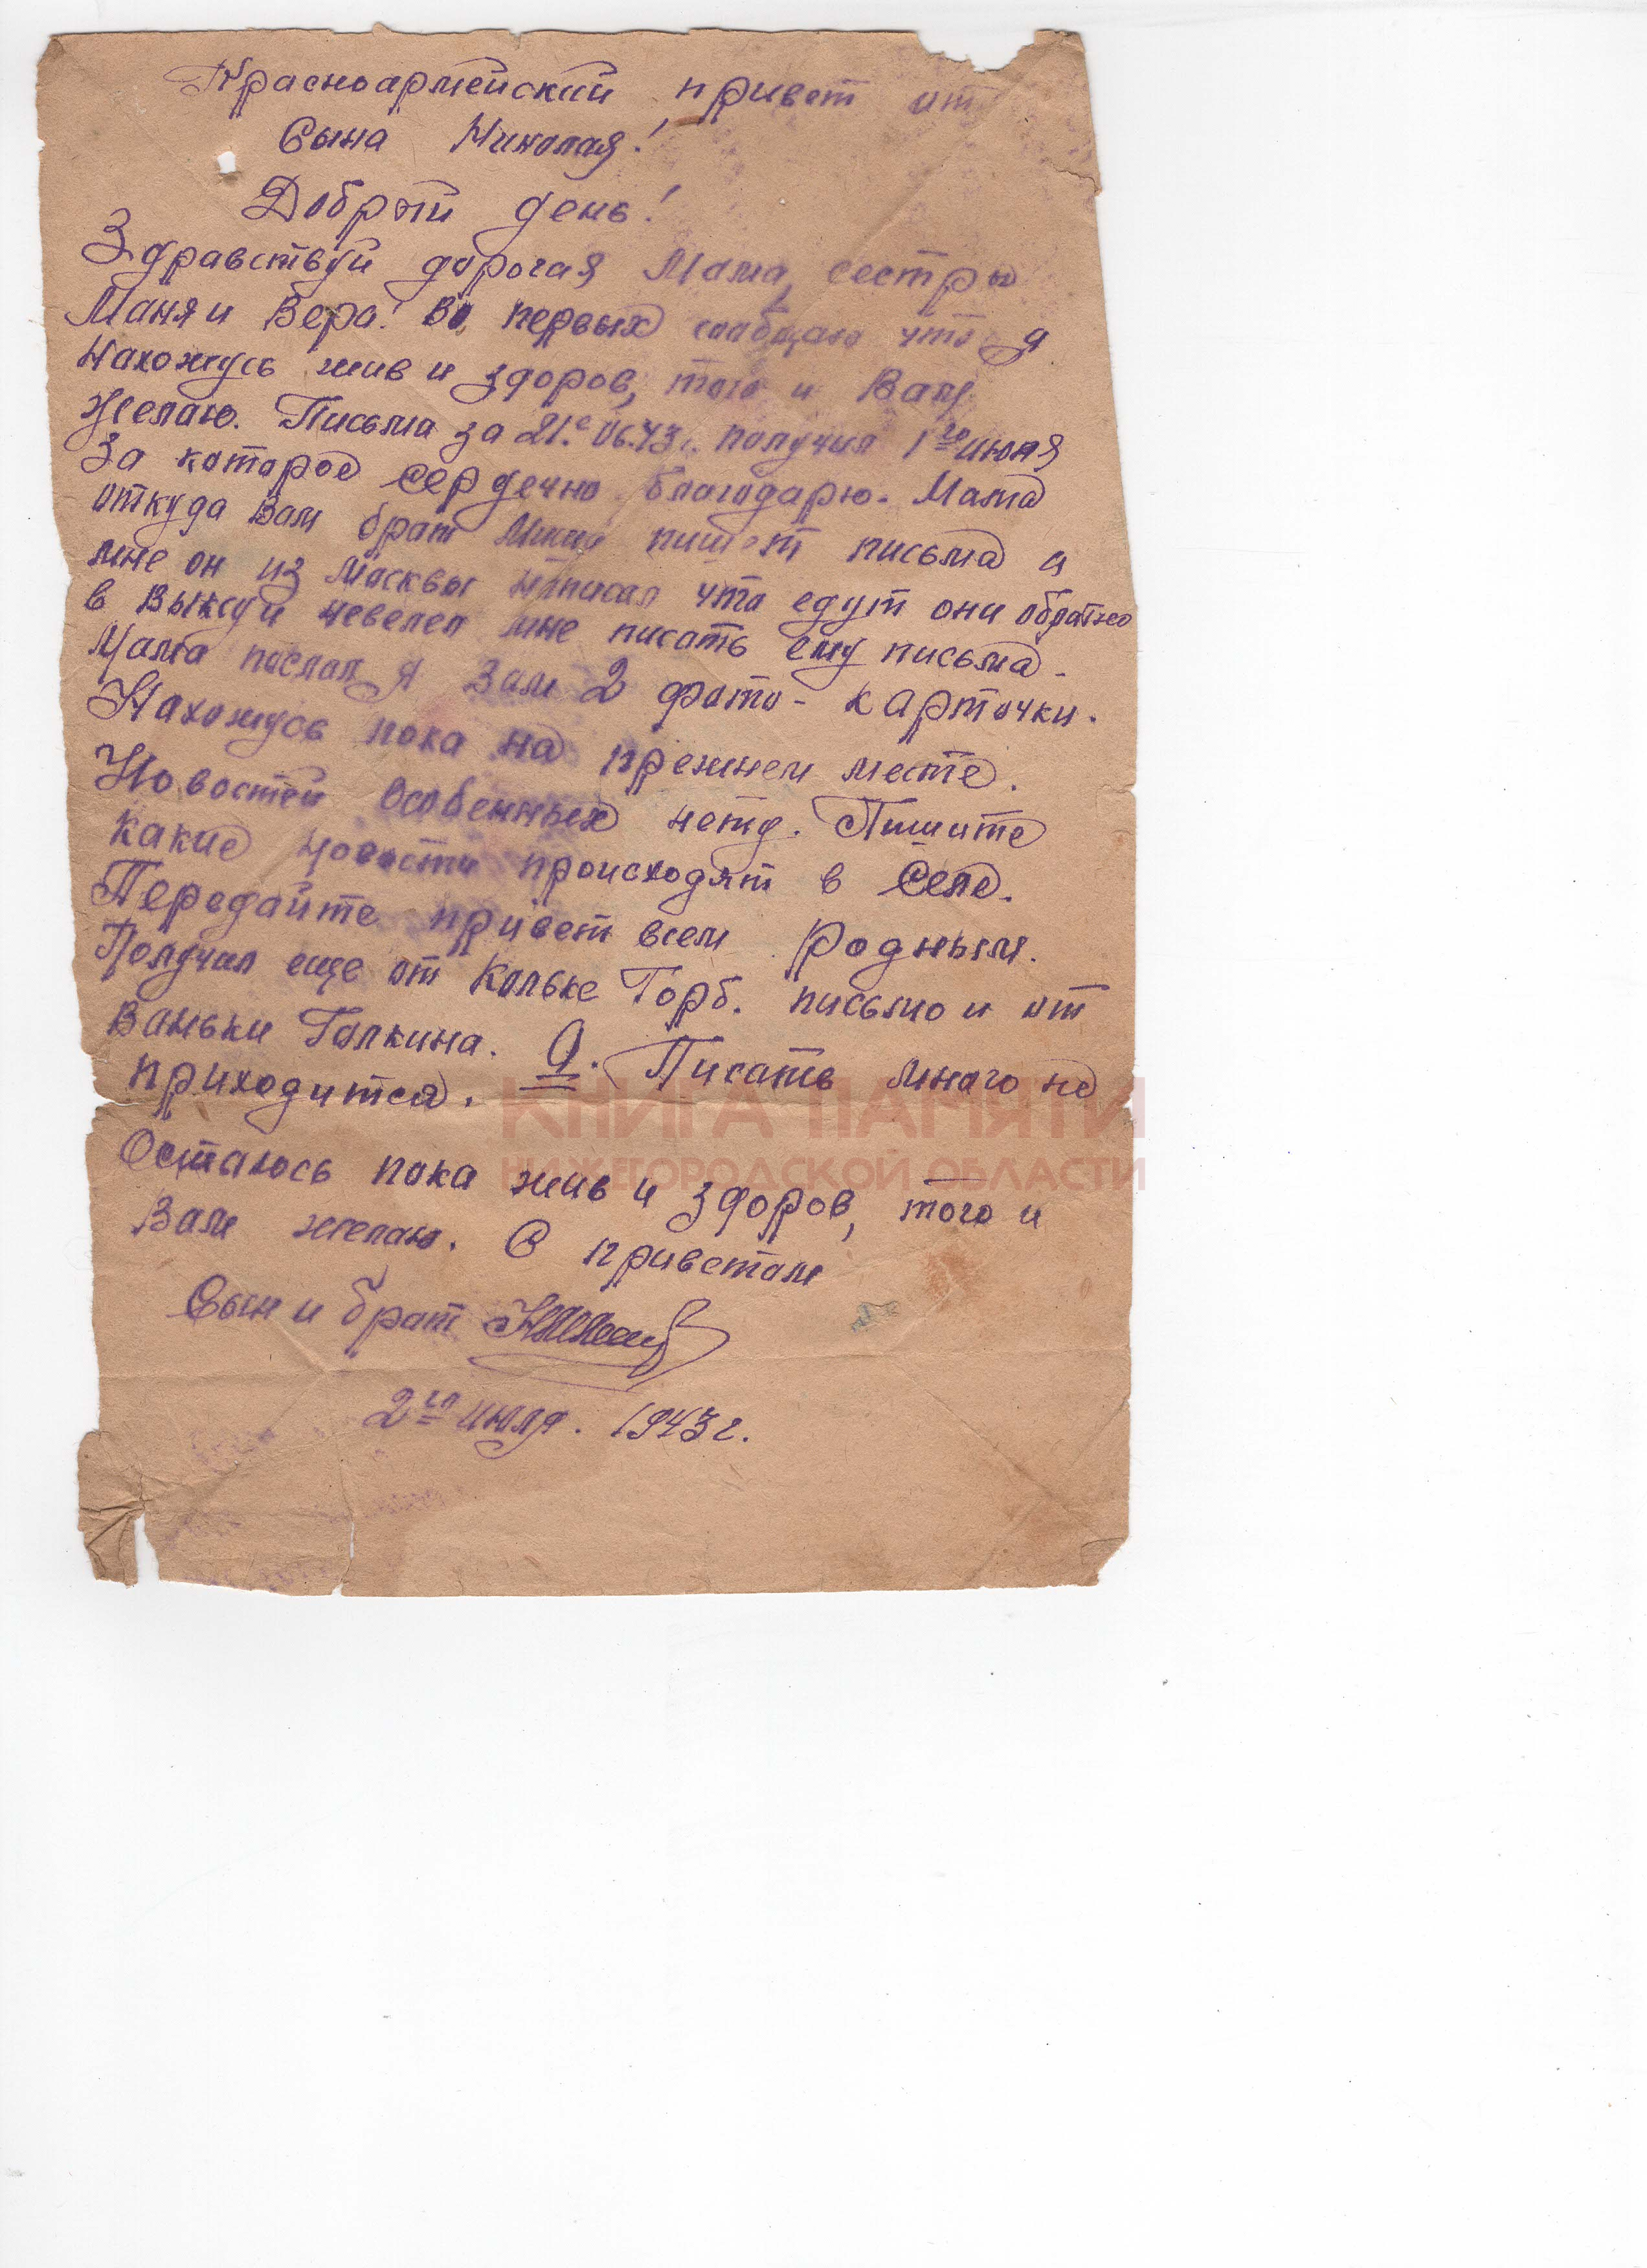 Красноармейский привет от
Сына Николая!
Добрый день!
Здравствуй дорогая Мама, сестры
Маня и Вера! Во первых сообщаю что я
нахожусь жив и здоров, того и Вам
желаю. Письма за 21.е 06.43г. получил 1го июня
за которое сердечно благодарю. Мама
откуда Вам брат пишет письма а
мне он из Москвы написал что едут они обратно
в Выксу и невелел мне писать ему письма.
Мама послал я Вам 2 фото-карточки.
Нахожусь пока на прежнем месте.
Новостей особенных нету. Пишите
какие новости происходят в Селе.
Передайте привет всем Родным.
Получил еще от Кольке Горб. письмо и от
Ваньки Галкина. Писать много не
приходится.
КНИГА ПАМЯТИ
НИЖЕГОРОДСКОЙ ОБЛАСТИ
Остаюсь пока жив и здоров, того и
Вам желаю. С приветом
Сын и брат
2го июля. 1943г.